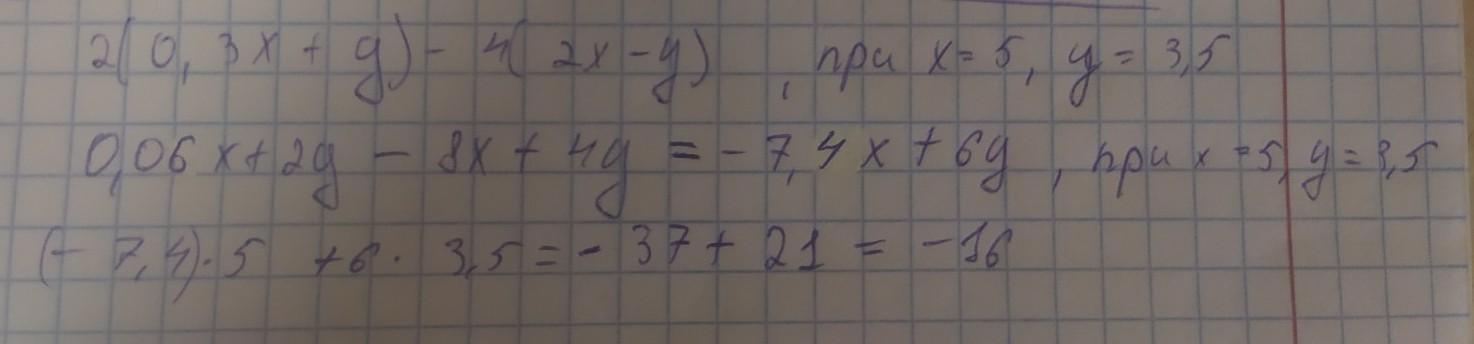 2(0,3x + y) - 4(2x - y) , при x = 5, y = 3,5
0,06x + 2y - 8x + 4y = - 7,4x + 6y , при x = 5, y = 3,5
(- 7,4) · 5 + 6 · 3,5 = - 37 + 21 = - 16